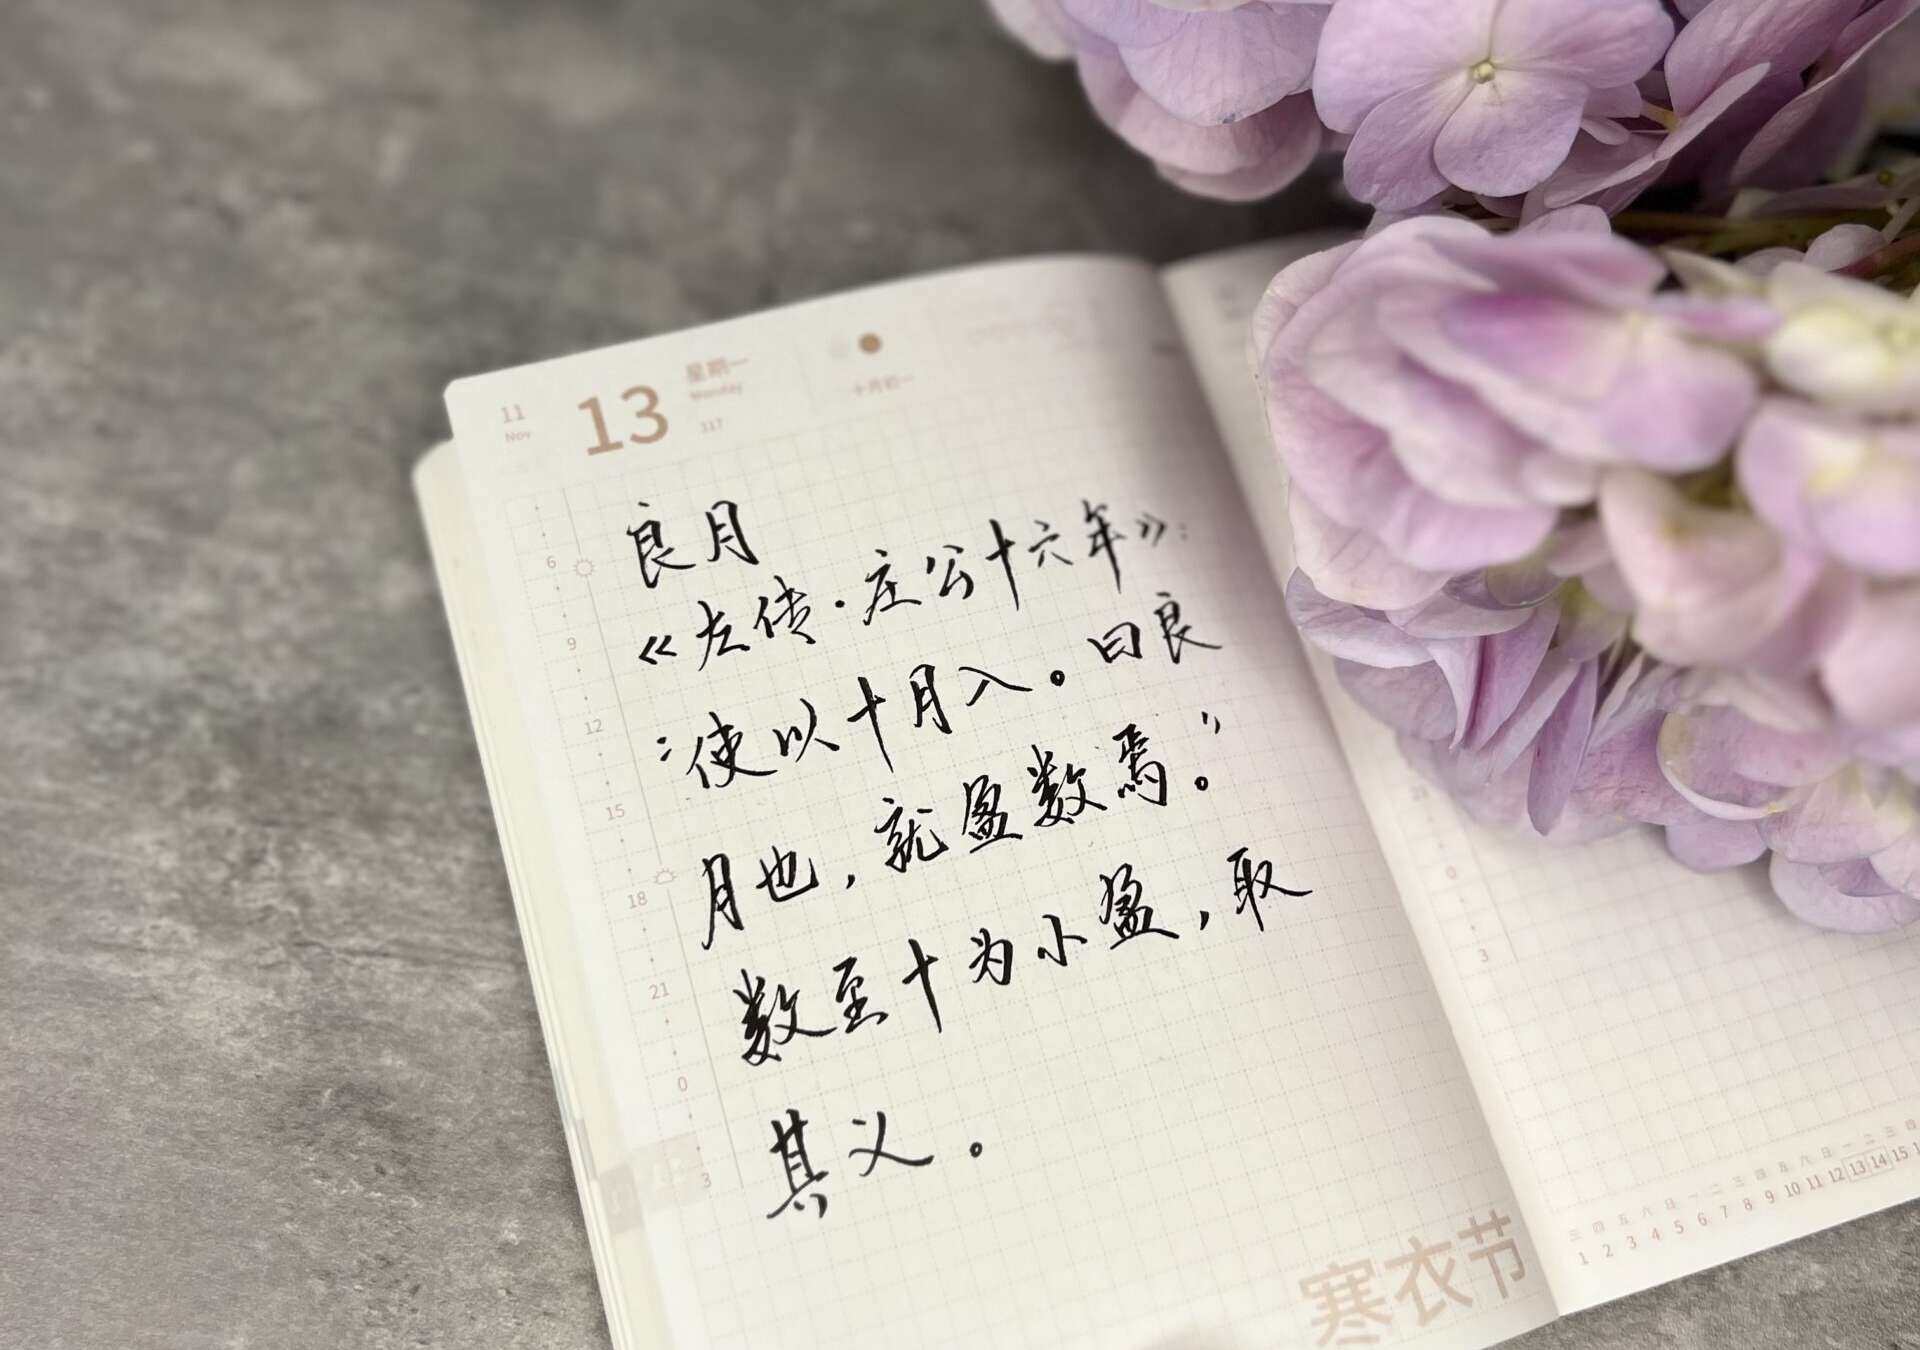 11
Nov
13
星期一
Monday
317
十月初一
良月
《左传·庄公十六年》:
“使以十月入。曰良
月也，就盈数焉。”
数至十为小盈，取
其义。
6
9
12
15
18
21
0
3
寒衣节
0
3
三 四 五 六 日 一 二 三 四 五 六 日 一 二 三 四
1 2 3 4 5 6 7 8 9 10 11 12 13 14 15